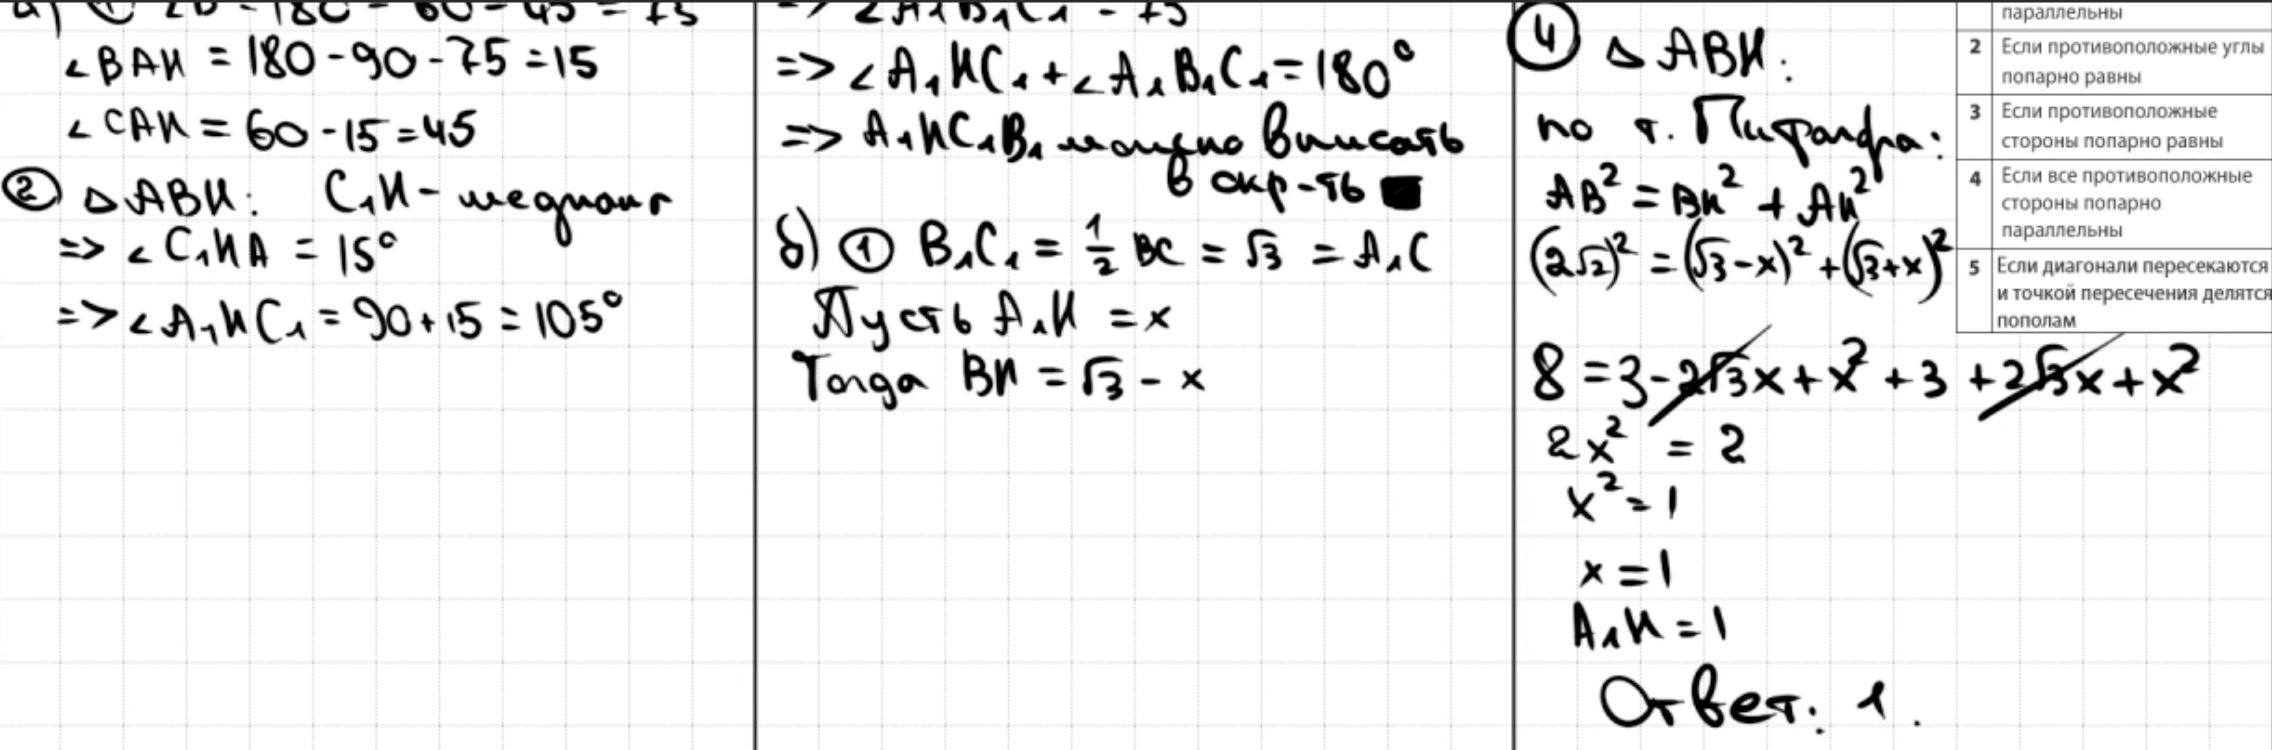 а) ① ∠B = 180 - 60 - 45 = 75
∠BAH = 180 - 90 - 75 = 15
∠CAH = 60 - 15 = 45
② △ABH: C₁H - медиана
=> ∠C₁HA = 15°
=> ∠A₁HC₁ = 90 + 15 = 105°
=> ∠A₁B₁C₁ = 75
=> ∠A₁HC₁ + ∠A₁B₁C₁ = 180°
=> A₁HC₁B₁ можно вписать
в окр-ть ■
б) ① B₁C₁ = 1/2 BC = √3 = A₁C
Пусть A₁H = x
Тогда BH = √3 - x
④ △ABH:
по т. Пифагора:
AB² = BH² + AH²
(2√2)² = (√3 - x)² + (√3 + x)²
8 = 3 - 2√3x + x² + 3 + 2√3x + x²
2x² = 2
x² = 1
x = 1
A₁H = 1
Ответ: 1.
параллельны
2 Если противоположные углы
попарно равны
3 Если противоположные
стороны попарно равны
4 Если все противоположные
стороны попарно
параллельны
5 Если диагонали пересекаются
и точкой пересечения делятся
пополам